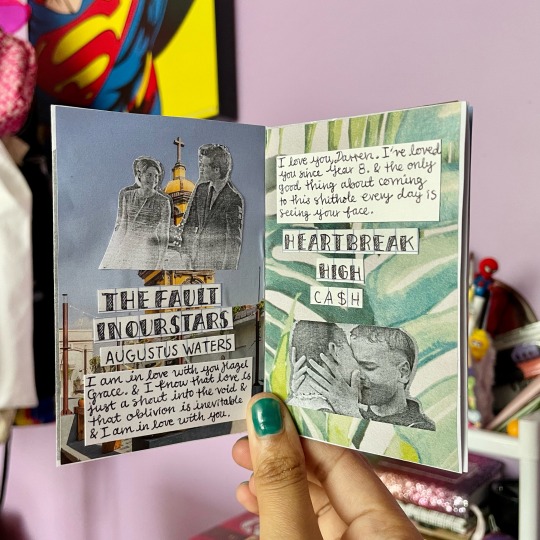 THE FAULT
IN OUR STARS
AUGUSTUS WATERS
I am in love with you Hazel
Grace. & I know that love is
just a shout into the void &
that oblivion is inevitable
& I am in love with you.
I love you, Darren. I've loved
you since Year 8. & the only
good thing about coming
to this shithole every day is
seeing your face.
HEARTBREAK
HIGH
CA$H